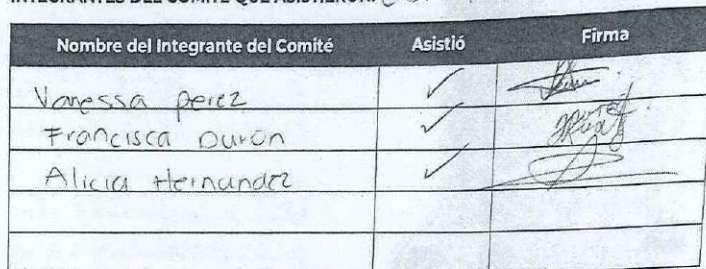 INTEGRANTES DEL COMITÉ QUE ASISTIERON:
Nombre del Integrante del Comité Asistió Firma
Vanessa perez ✓
Francisca Duron ✓
Alicia Hernandez ✓